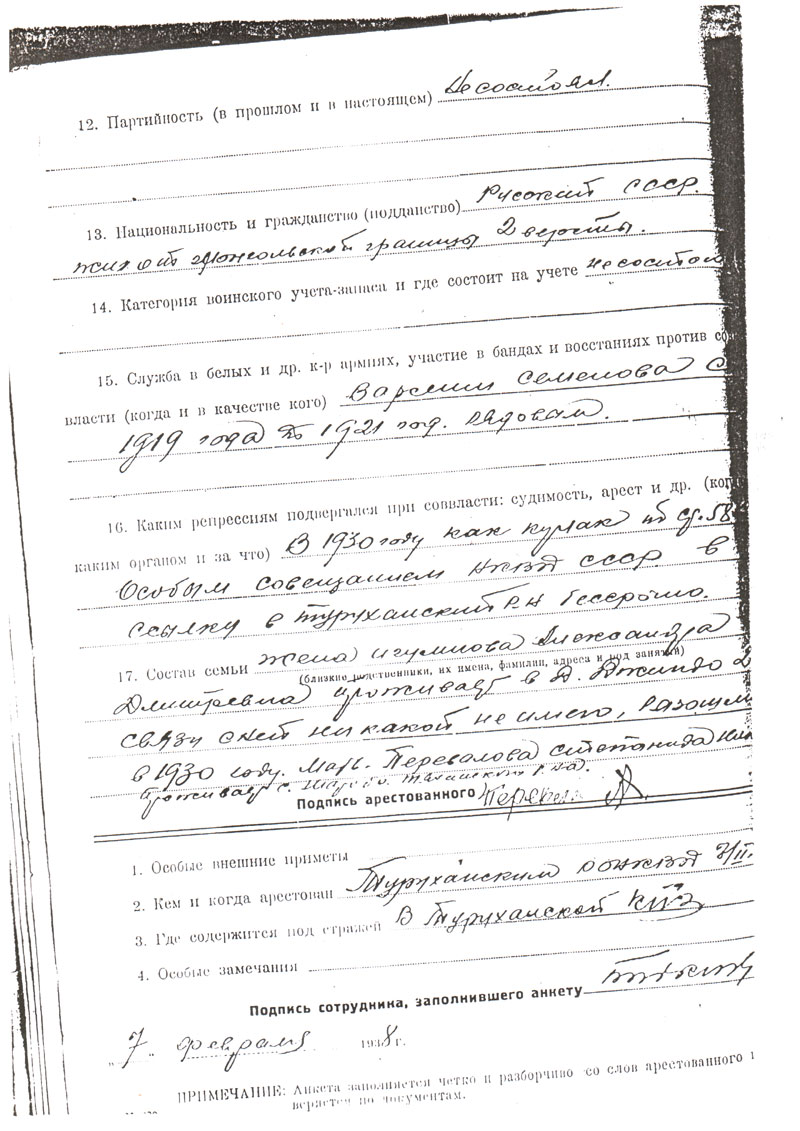 12. Партийность (в прошлом и в настоящем) Не состоял.
13. Национальность и гражданство (подданство) Русский СССР.
жил от монгольской границы 2 версты.
14. Категория воинского учета-запаса и где состоит на учете не состоял
15. Служба в белых и др. к-р армиях, участие в бандах и восстаниях против сов
власти (когда и в качестве кого) В армии Семенова с
1919 года по 1921 год. рядовым.
16. Каким репрессиям подвергался при соввласти: судимость, арест и др. (ког
каким органом и за что) В 1930 году как кулак по ст. 58
Особым совещанием НКВД СССР в
ссылку в Туруханский р-н бессрочно.
17. Состав семьи жена Игумнова Александра
(близкие родственники, их имена, фамилии, адреса и род занятий)
Дмитревна проживает в д. Джинда
связи с ней никакой не имею, разошли
в 1930 году. Мать Перевалова Степанида
проживает с.
Подпись арестованного
1. Особые внешние приметы
2. Кем и когда арестован Туруханским РОНКВД 7/II.
3. Где содержится под стражей В Туруханской КПЗ
4. Особые замечания
Подпись сотрудника, заполнившего анкету
„ 7 „ февраля 1938 г.
ПРИМЕЧАНИЕ: Анкета заполняется четко и разборчиво со слов арестованного и
веряется по документам.